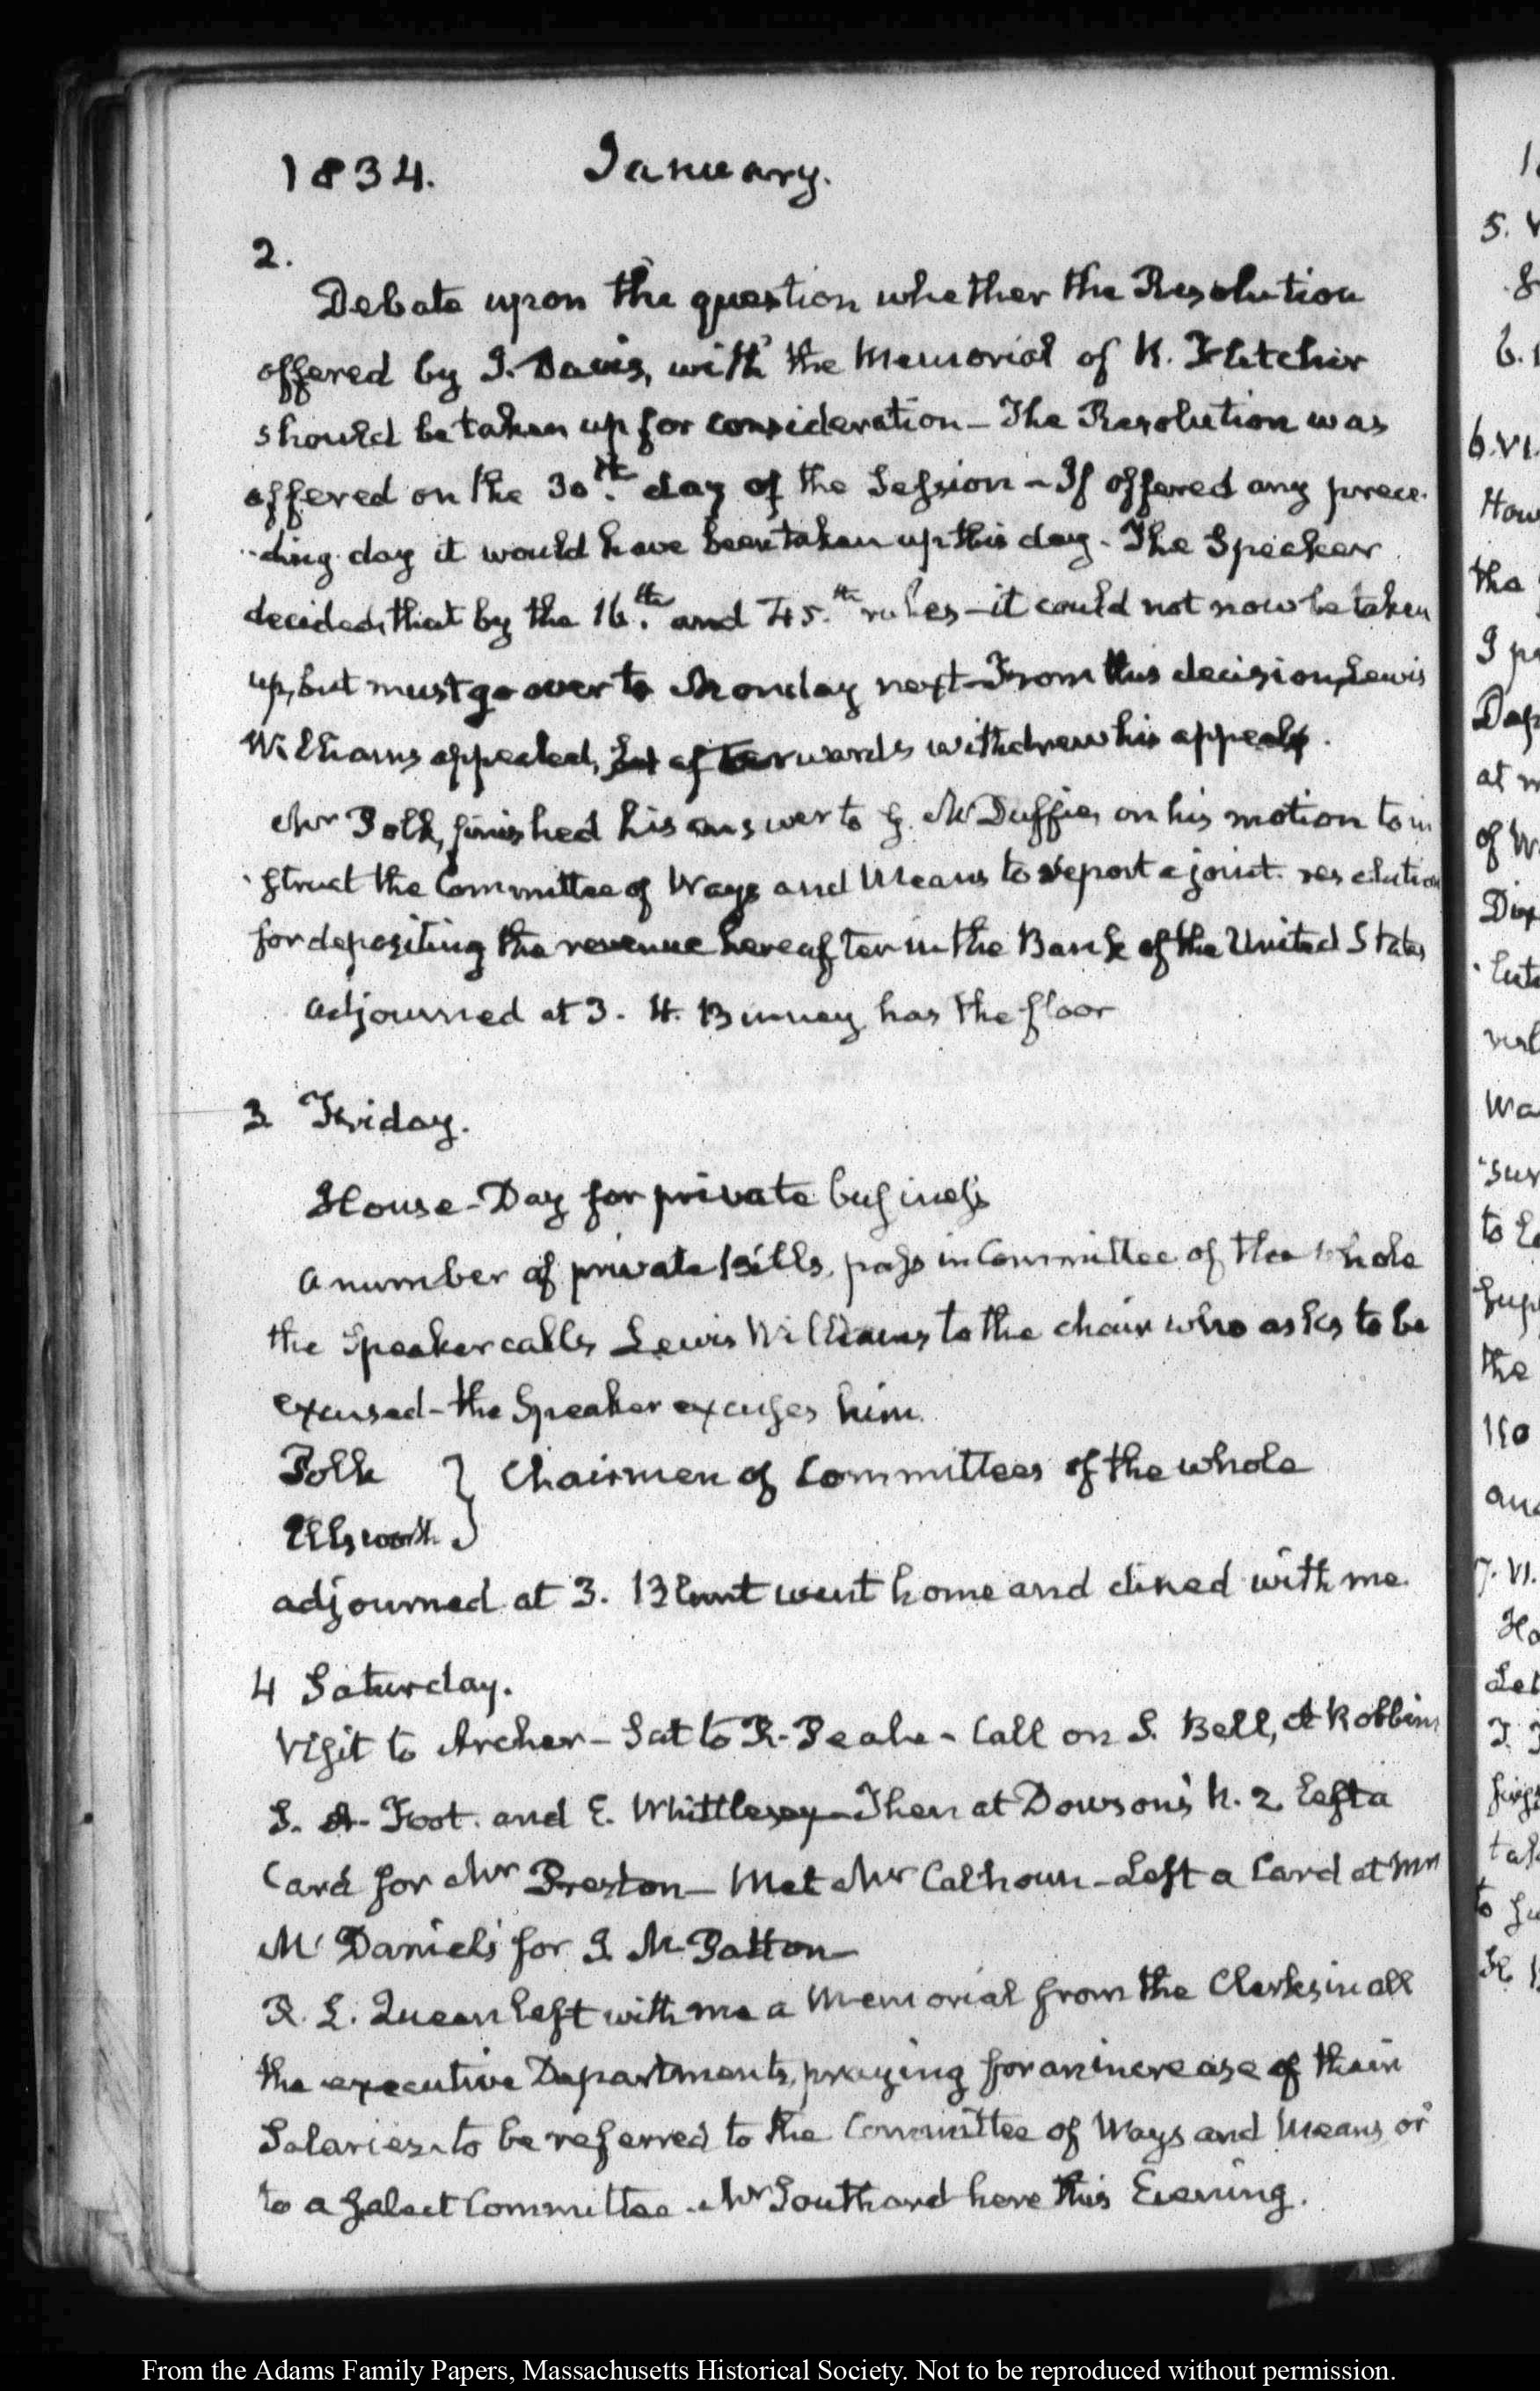 1834. January.
2.
Debate upon the question whether the Resolution
offered by J. Davis, with the Memorial of K. Fletcher
should be taken up for consideration — The Resolution was
offered on the 30th. day of the Session — If offered any prece-
-ding day it would have been taken up this day. The Speaker
decided, that by the 16th. and 45.th rules — it could not now be taken
up, but must go over to Monday next — From this decision, Lewis
Williams appealed, but afterwards withdrew his appeal.
Mr Polk, finished his answer to G. McDuffie, on his motion to in
-struct the Committee of Ways and Means to report a joint resolution
for depositing the revenue hereafter in the Bank of the United States
adjourned at 3. H. Binney has the floor
3 Friday.
House - Day for private business
a number of private bills, pass in Committee of the whole
the Speaker calls Lewis Williams to the chair who asks to be
excused - the Speaker excuses him.
Polk } Chairmen of Committees of the whole
Ellsworth }
adjourned at 3. Blunt went home and dined with me.
4 Saturday.
Visit to Archer — Sat to R. Peale - Call on S. Bell, A Robbins
S. A. Foot. and E. Whittlesey — Then at Dowson's N. 2 left a
Card for Mr Preston — Met Mr Calhoun — Left a Card at Mrs
McDaniel's for J. M. Patton —
R. L. Queen left with me a Memorial from the Clerks in all
the executive Departments, praying for an increase of their
Salaries. to be referred to the Committee of Ways and Means, or
to a Select Committee. Mr Southard here this Evening.
From the Adams Family Papers, Massachusetts Historical Society. Not to be reproduced without permission.